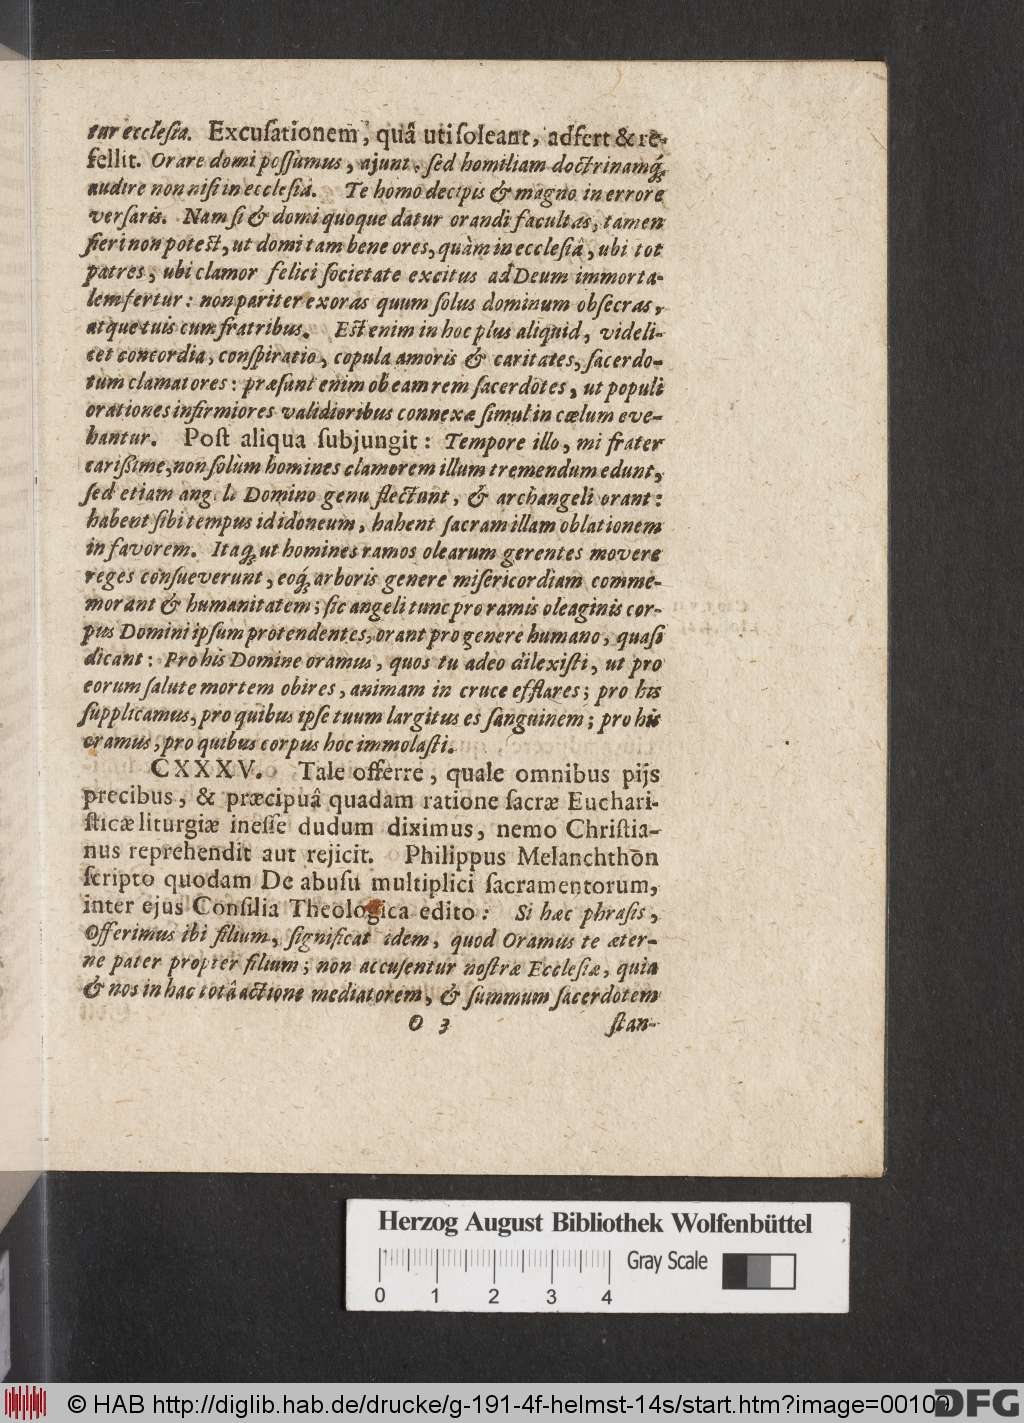 tur ecclesia. Excusationem, quâ uti soleant, adfert & re-
fellit. Orare domi possumus, ajunt, sed homiliam doctrinamq́;
audire non nisi in ecclesia. Te homo decipis & magno in errore
versaris. Nam si & domi quoque datur orandi facultas, tamen
fieri non potest, ut domi tam bene ores, quàm in ecclesiâ, ubi tot
patres, ubi clamor felici societate excitus ad Deum immorta-
lem fertur: non pariter exoras quum solus dominum obsecras,
atque tuis cum fratribus. Est enim in hoc plus aliquid, videli-
cet concordia, conspiratio, copula amoris & caritates, sacerdo-
tum clamatores: præsunt enim ob eam rem sacerdotes, ut populi
orationes infirmiores validioribus connexæ simul in cælum eve-
hantur. Post aliqua subjungit: Tempore illo, mi frater
carissime, non solùm homines clamorem illum tremendum edunt,
sed etiam angeli Domino genu flectunt, & archangeli orant:
habent sibi tempus id idoneum, habent sacram illam oblationem
in favorem. Itaq; ut homines ramos olearum gerentes movere
reges consueverunt, eoq́; arboris genere misericordiam comme-
morant & humanitatem; sic angeli tunc pro ramis oleaginis cor-
pus Domini ipsum protendentes, orant pro genere humano, quasi
dicant: Pro his Domine oramus, quos tu adeo dilexisti, ut pro
eorum salute mortem obires, animam in cruce efflares; pro his
supplicamus, pro quibus ipse tuum largitus es sanguinem; pro his
oramus, pro quibus corpus hoc immolasti.
CXXXV. Tale offerre, quale omnibus pijs
precibus, & præcipuâ quadam ratione sacræ Euchari-
sticæ liturgiæ inesse dudum diximus, nemo Christia-
nus reprehendit aut rejicit. Philippus Melanchthon
scripto quodam De abusu multiplici sacramentorum,
inter ejus Consilia Theologica edito: Si hæc phrasis,
Offerimus ibi filium, significat idem, quod Oramus te æter-
ne pater propter filium; non accusentur nostræ Ecclesiæ, quia
& nos in hac totâ actione mediatorem, & summum sacerdotem
O 3 stan-
Herzog August Bibliothek Wolfenbüttel
Gray Scale
0 1 2 3 4
© HAB http://diglib.hab.de/drucke/g-191-4f-helmst-14s/start.htm?image=00109
DFG